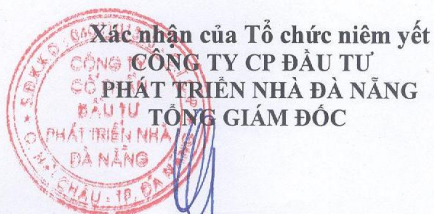 Xác nhận của Tổ chức niêm yết
CÔNG TY CP ĐẦU TƯ
PHÁT TRIỂN NHÀ ĐÀ NẴNG
TỔNG GIÁM ĐỐC
CÔNG TY
CỔ PHẦN
ĐẦU TƯ
PHÁT TRIỂN NHÀ
ĐÀ NẴNG